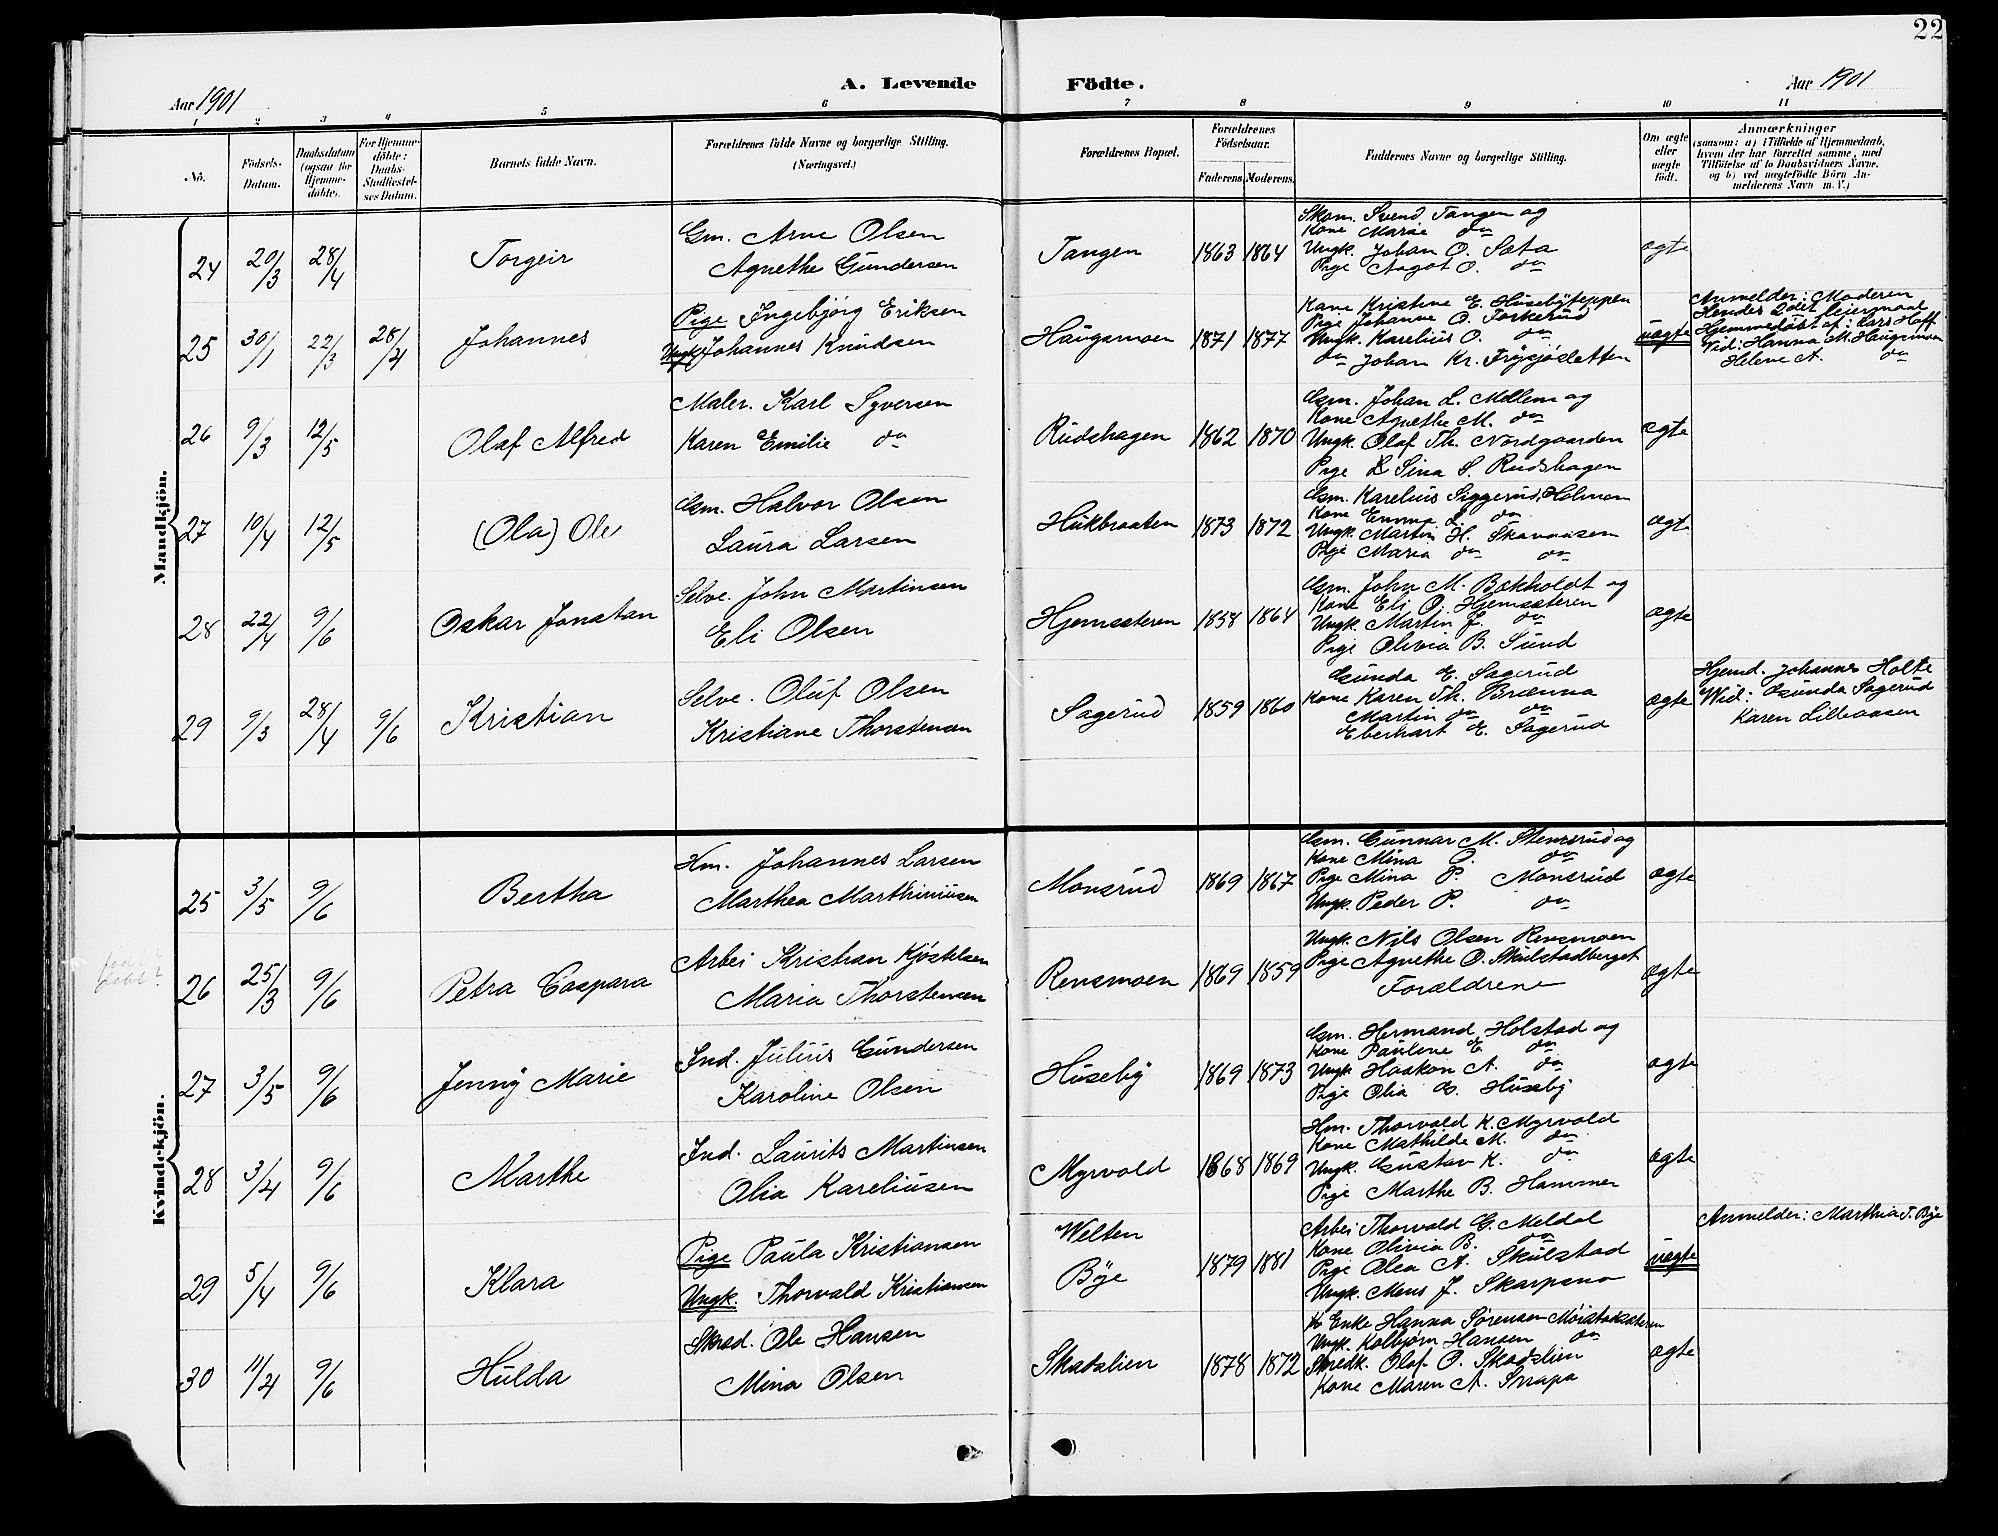 22
A. Levende Födte.
Aar 1901
Aar 1901
1 2 3 4 5 6 7 8 9 10 11
No.
Födsels-Datum.
Daabsdatum (ogsaa for Hjemmedöbte).
For Hjemmedöbte: Daabs-Stadfæstelses Datum.
Barnets fulde Navn.
Forældrenes fulde Navne og borgerlige Stilling. (Næringsvei.)
Forældrenes Bopæl.
Forældrenes Födselsaar.
Faderens. Moderens.
Faddernes Navne og borgerlige Stilling.
Om ægte eller uægte födt.
Anmærkninger
(saasom: a) i Tilfælde af Hjemmedaab,
hvem der har forrettet samme, med
Tilföielse af to Daabsvidners Navne,
og b) ved uægtefödte Börn An-
melderens Navn m. V.)
Mandkjön.
24 20/3 28/4 Torgeir
Gm. Arne Olsen
Agnethe Gundersen
Tangen 1863 1864
Skom. Svend Tangen og
Kone Marie do
Ungk. Johan O. Sæta
Pige Aagot O. do
ægte
25 30/1 22/3 28/4 Johannes
Pige Ingebjørg Eriksen
Ungk. Johannes Knudsen
Haugsmoen 1871 1877
Kone Kristine E. Husebyteppen
Pige Johanne O. Torkerud
Ungk. Karelius O. do
do Johan Kr. Frysjøsletten
uægte
Anmelder: Moderen
Hendes 2det leiermaal
Hjemmedøbt af: Lars Hoff
Vid: Hanna M. Haugsmoen
Helene A. do
26 9/3 12/5 Olaf Alfred
Maler. Karl Syversen
Karen Emilie do
Rudshagen 1862 1870
Gm. Johan L. Mellem og
Kone Agnethe M. do
Ungk. Olaf Th. Nordgaarden
Pige L Sina S. Rudshagen
ægte
27 10/4 12/5 (Ola) Ole
Gm. Halvor Olsen
Laura Larsen
Hukbraaten 1873 1872
Gm. Karelius Siggerud, Holmen
Kone Emma L. do
Ungk. Martin H. Skavaasen
Pige Maria do do
ægt
28 22/4 9/6 Oskar Jonatan
Selve. John Martinsen
Eli Olsen
Hjemsæteren 1858 1864
Gm. John M. Bækholdt og
Kone Eli O. Hjemsæteren
Ungk. Martin J. do
Pige Olivia B. Sund
ægte
29 9/3 28/4 9/6 Kristian
Selve. Oluf Olsen
Kristiane Thorstensen
Sagerud 1859 1860
Gunda E. Sagerud
Kone Karen Th. Brænna
Martin do do
Eberhart E. Sagerud
ægte
Hjemd. Johannes Holte
Vid: Gunda Sagerud
Karen Lilleaasen
Kvindekjön.
25 3/5 9/6 Bertha
Hm. Johannes Larsen
Marthea Marthiniusen
Monsrud 1869 1867
Gm. Gunnar M. Stensrud og
Kone Mina O. do
Pige Mina P. Monsrud
Ungk. Peder P. do
ægte
26 25/3 9/6 Petra Caspara
Arbei Kristian Kjøstelsen
Maria Thorstensen
Revsmoen 1869 1859
Ungk. Nils Olsen Revsmoen
Pige Agnethe O. Skulstadberget
Forældrene
ægte
27 3/5 9/6 Jenny Marie
Ind. Julius Gundersen
Karoline Olsen
Huseby 1869 1873
Gm. Hermand Holstad og
Kone Pauline E. do
Ungk. Haakon A. do
Pige Olia G. Huseby
ægte
28 3/4 9/6 Marthe
Ind. Laurits Martinsen
Olia Kareliusen
Myrvold 1868 1869
Hm. Thorvald K. Myrvold
Kone Mathilde M. do
Ungk. Gustav K. do
Pige Marthe B. Hammer
ægte
29 5/4 9/6 Klara
Pige Paula Kristiansen
Ungk. Thorvald Kristiansen
Welten
Bye
1879 1881
Arbei Thorvald G. Meldal
Kone Olivia B. do
Pige Olea A. Skulstad
Ungk. Mens J. Skarpsno
uægte
Anmelder: Marthia T. Bye
30 11/4 9/6 Hulda
Skræd. Ole Hansen
Mina Olsen
Skatslien 1878 1872
Enke Hanna Sørensen Moistadsæteren
Ungk. Kolbjørn Hansen do
Skredk. Olaf O. Skodslien
Kone Maren A. Svvapa
ægte